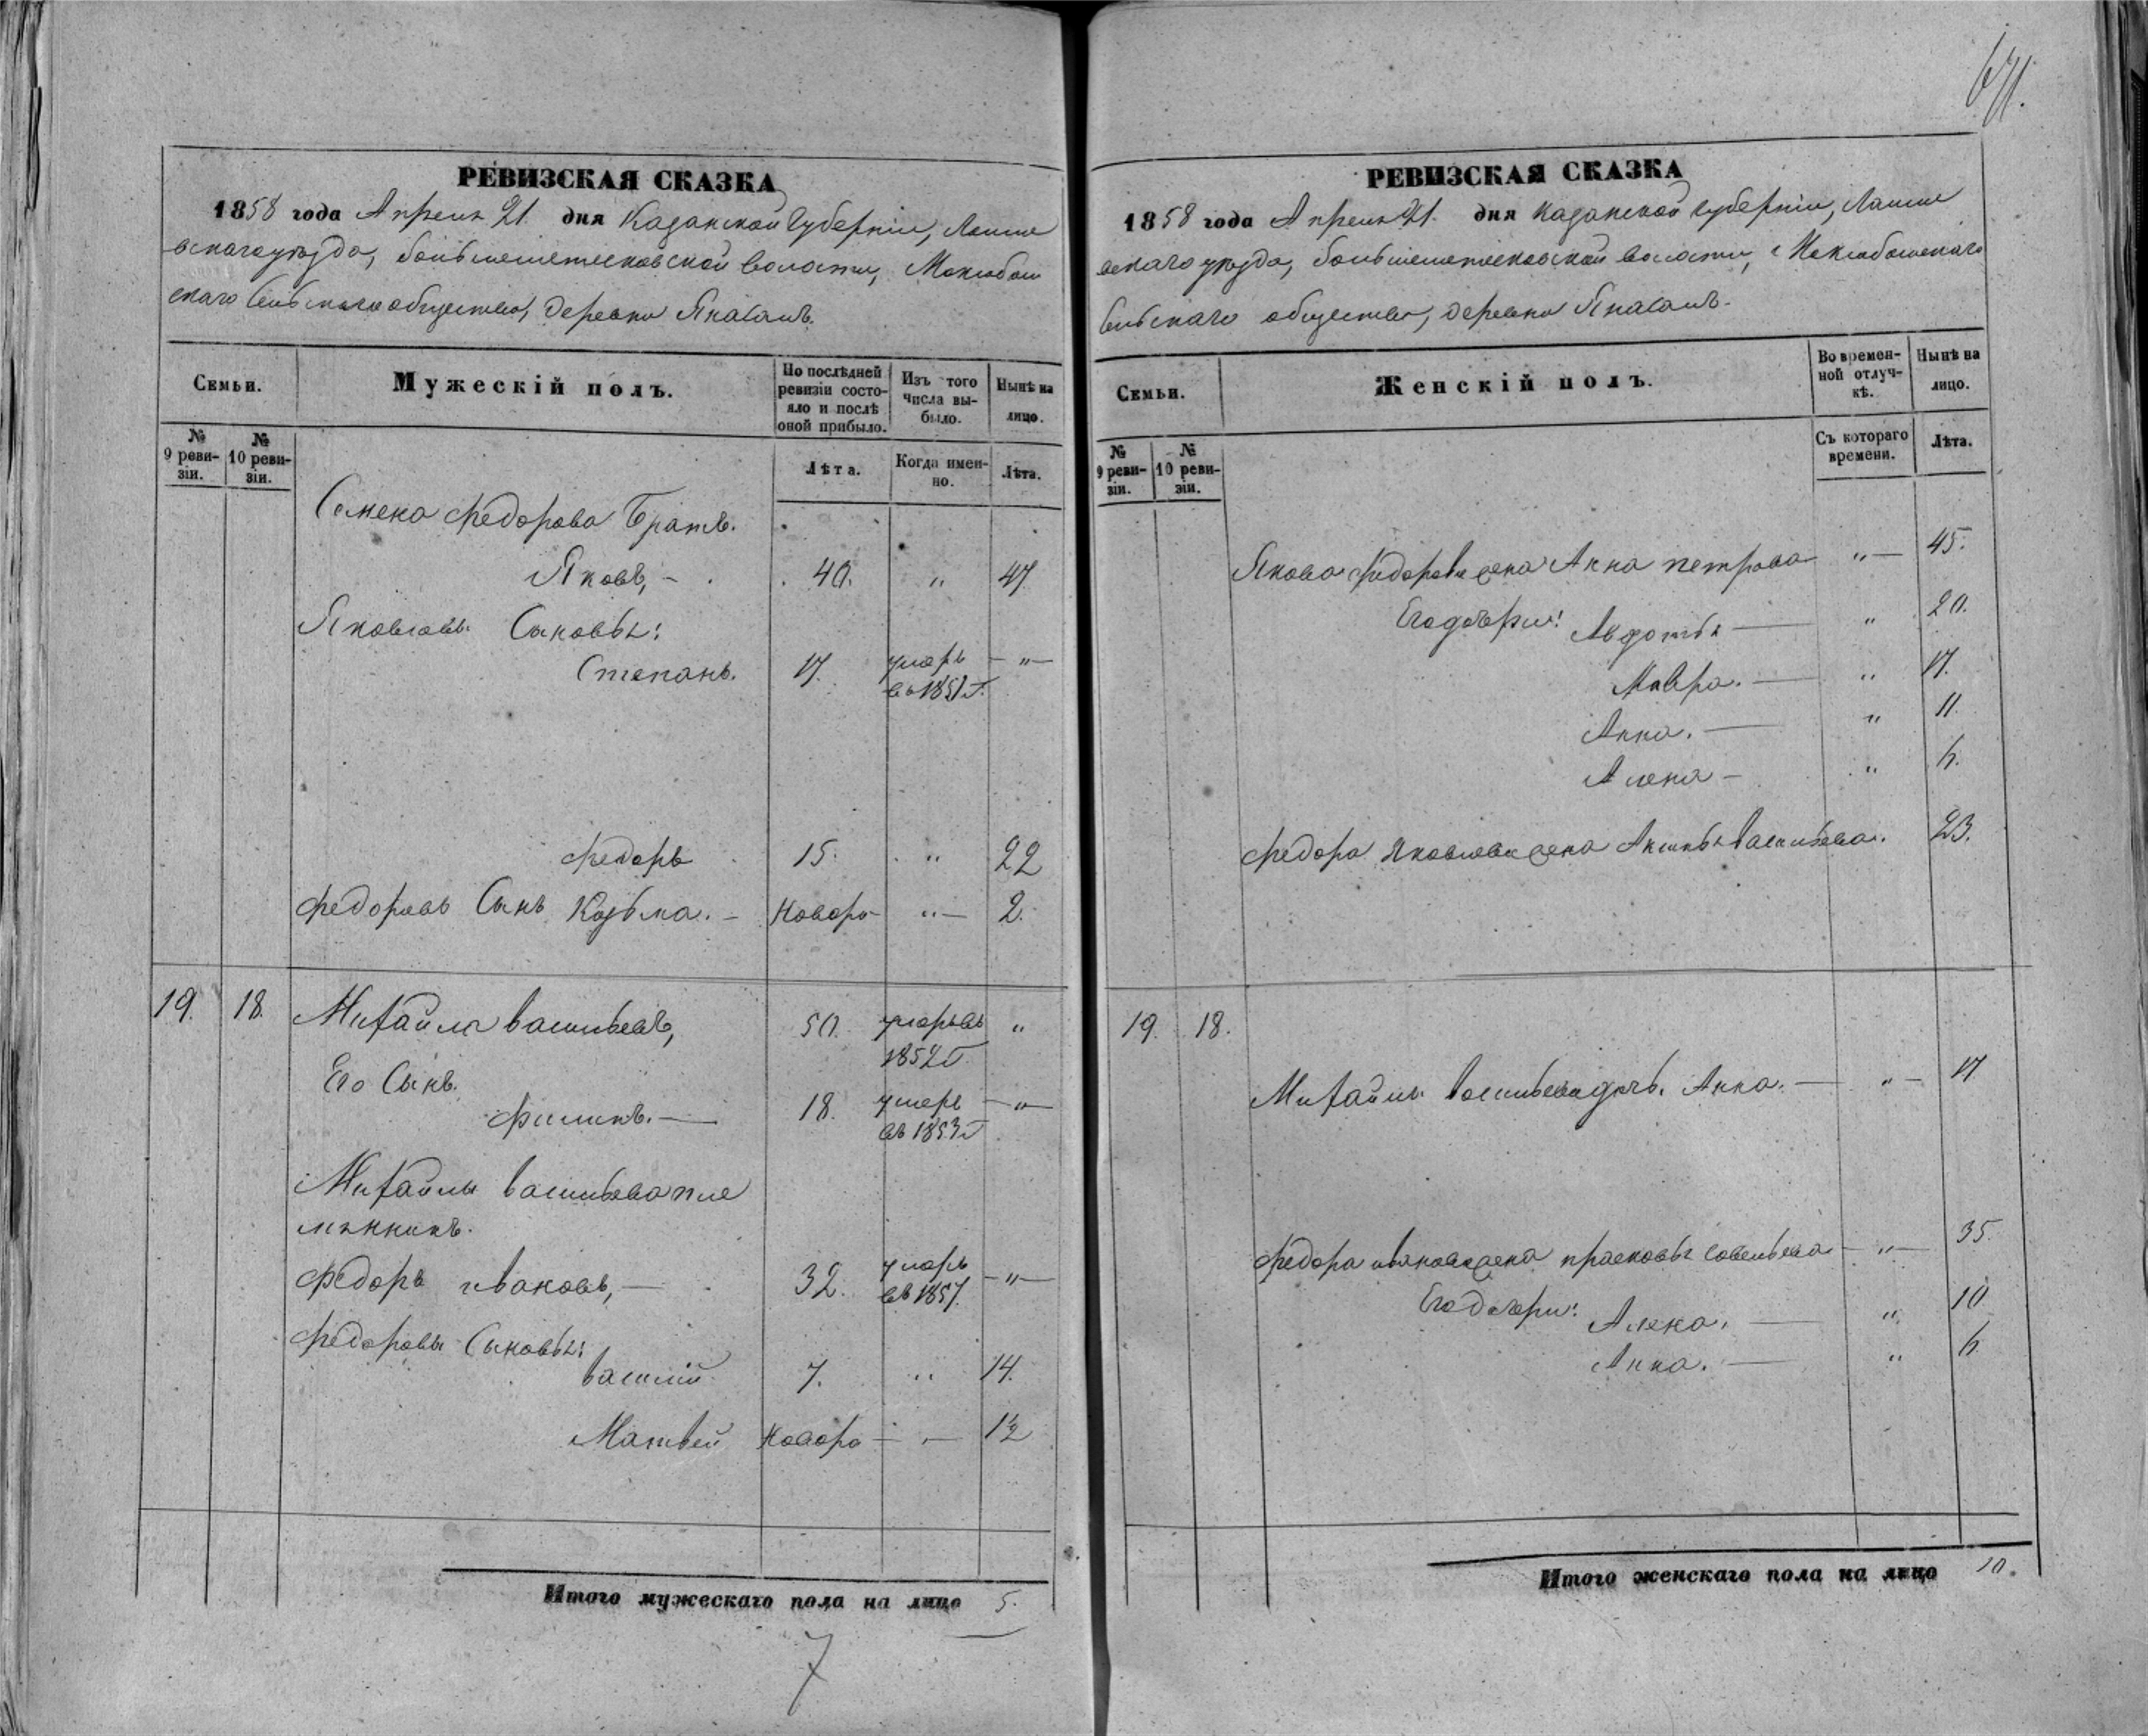 671.
РЕВИЗСКАЯ СКАЗКА
1858 года Апреля 21 дня Казанской Губерніи, Лаише
вскаго уезда, больше
волости,
скаго Сельскаго общества, деревни
Семьи.
Мужескій полъ.
По послѣдней ревизіи состояло и послѣ оной прибыло.
Изъ того числа выбыло.
Нынѣ на лицо.
№ 9 ревизіи.
№ 10 ревизіи.
Лѣта.
Когда именно.
Лѣта.
Семена Федорова Братъ.
Яковъ, - 40. " 47
Яковлевы Сыновья:
Степанъ. 17. умеръ — " —
въ 1851 г.
Федоръ 15. " 22
Федоровъ Сынъ Козьма. — Новоро — " — 2.
19. 18. Михайла Васильевъ, 50. умеръ въ "
1852 г.
Его Сынъ.
Филипъ. — 18. умеръ — " —
въ 1853 г
Михайлы Васильева пле
мянникъ.
Федоръ Ивановъ, — 32. умеръ — " —
въ 1857.
Федоровы Сыновья:
Василій 7. " 14.
Матвей Новоро — " — 1½
Итого мужескаго пола на лицо 5.
7
РЕВИЗСКАЯ СКАЗКА
1858 года Апреля 21. дня Казанской Губерніи, Лаише
вскаго уезда, больше
волости,
Сельскаго общества, деревни
Семьи.
Женскій полъ.
Во временной отлучкѣ.
Нынѣ на лицо.
№ 9 ревизіи.
№ 10 ревизіи.
Съ котораго времени.
Лѣта.
Якова Федорова жена Анна Петрова " — 45.
Его дочери: Авдотья — " 20.
Мавра. — " 17.
Анна. — " 11.
Алена — " 6.
Федора Яковлева жена Аксинья Васильева. 23.
19. 18.
Михайлы Васильева дочь. Анна. — " — 17
Федора Иванова жена Прасковья Савельева — " — 35.
Его дочери: Алена. — " 10
Анна. — " 6.
Итого женскаго пола на лицо 10.